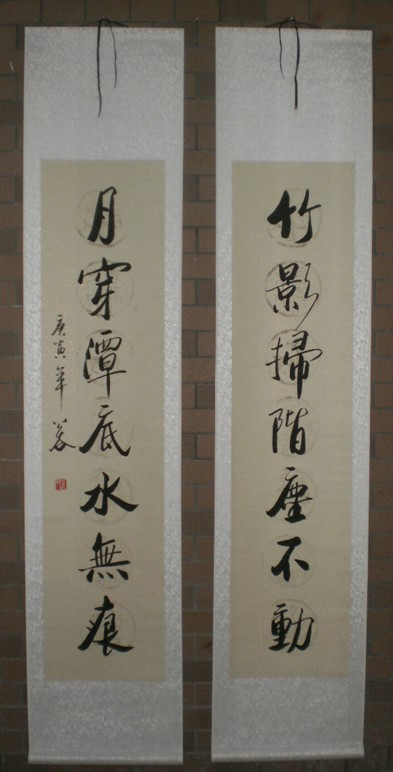 竹影掃階塵不動
月穿潭底水無痕
庚寅年